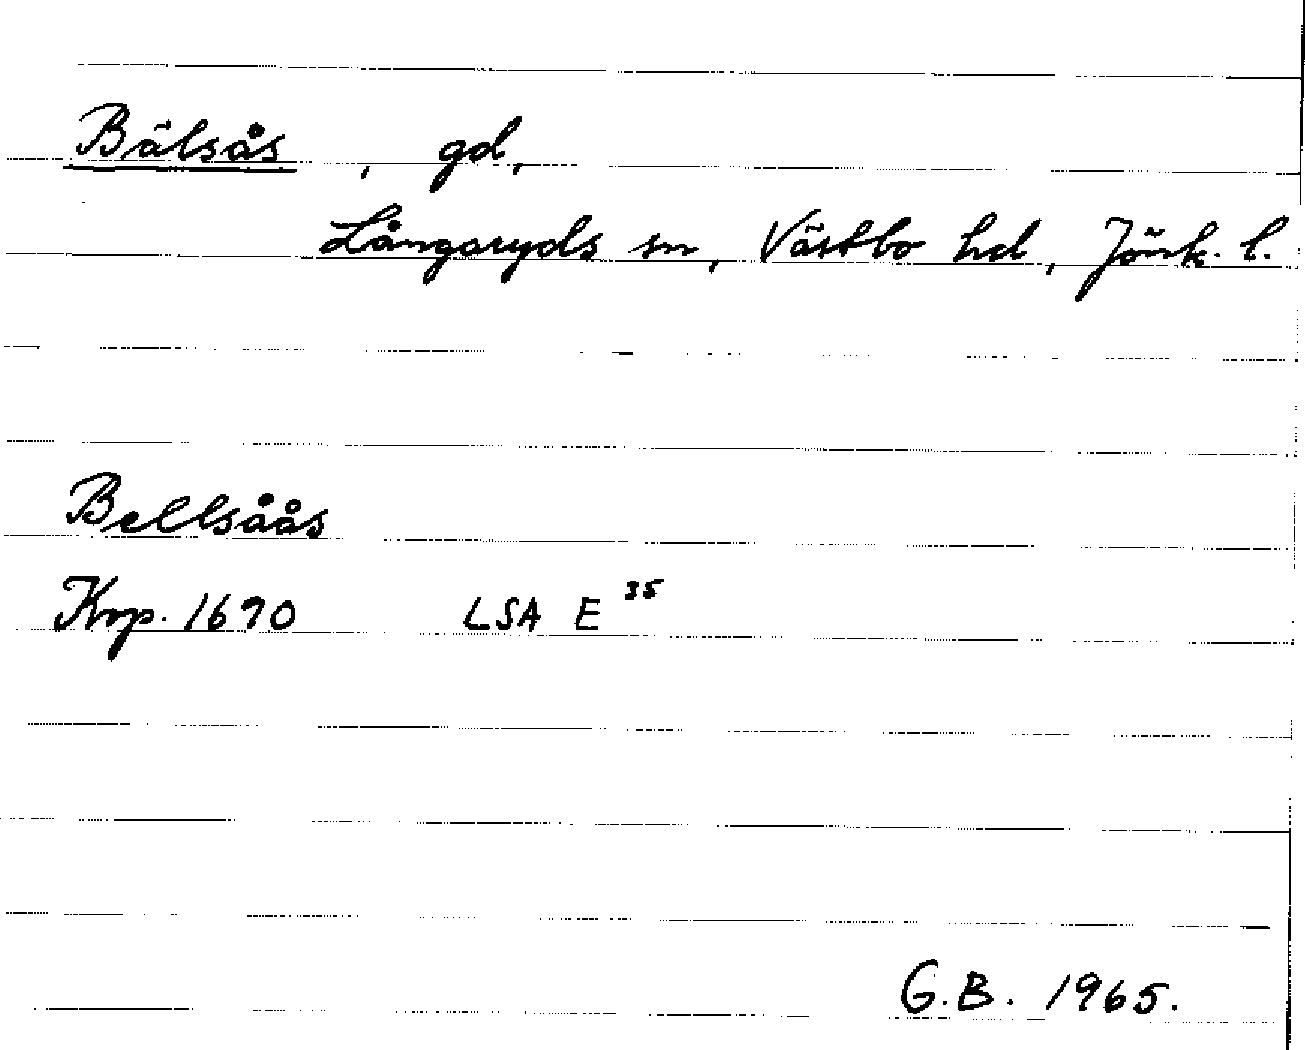 Bälsås, gd,
Långaryds sn, Västbo hd, Jönk. l.
Bellsåås
Krp. 1690 LSA E 35
G.B. 1965.